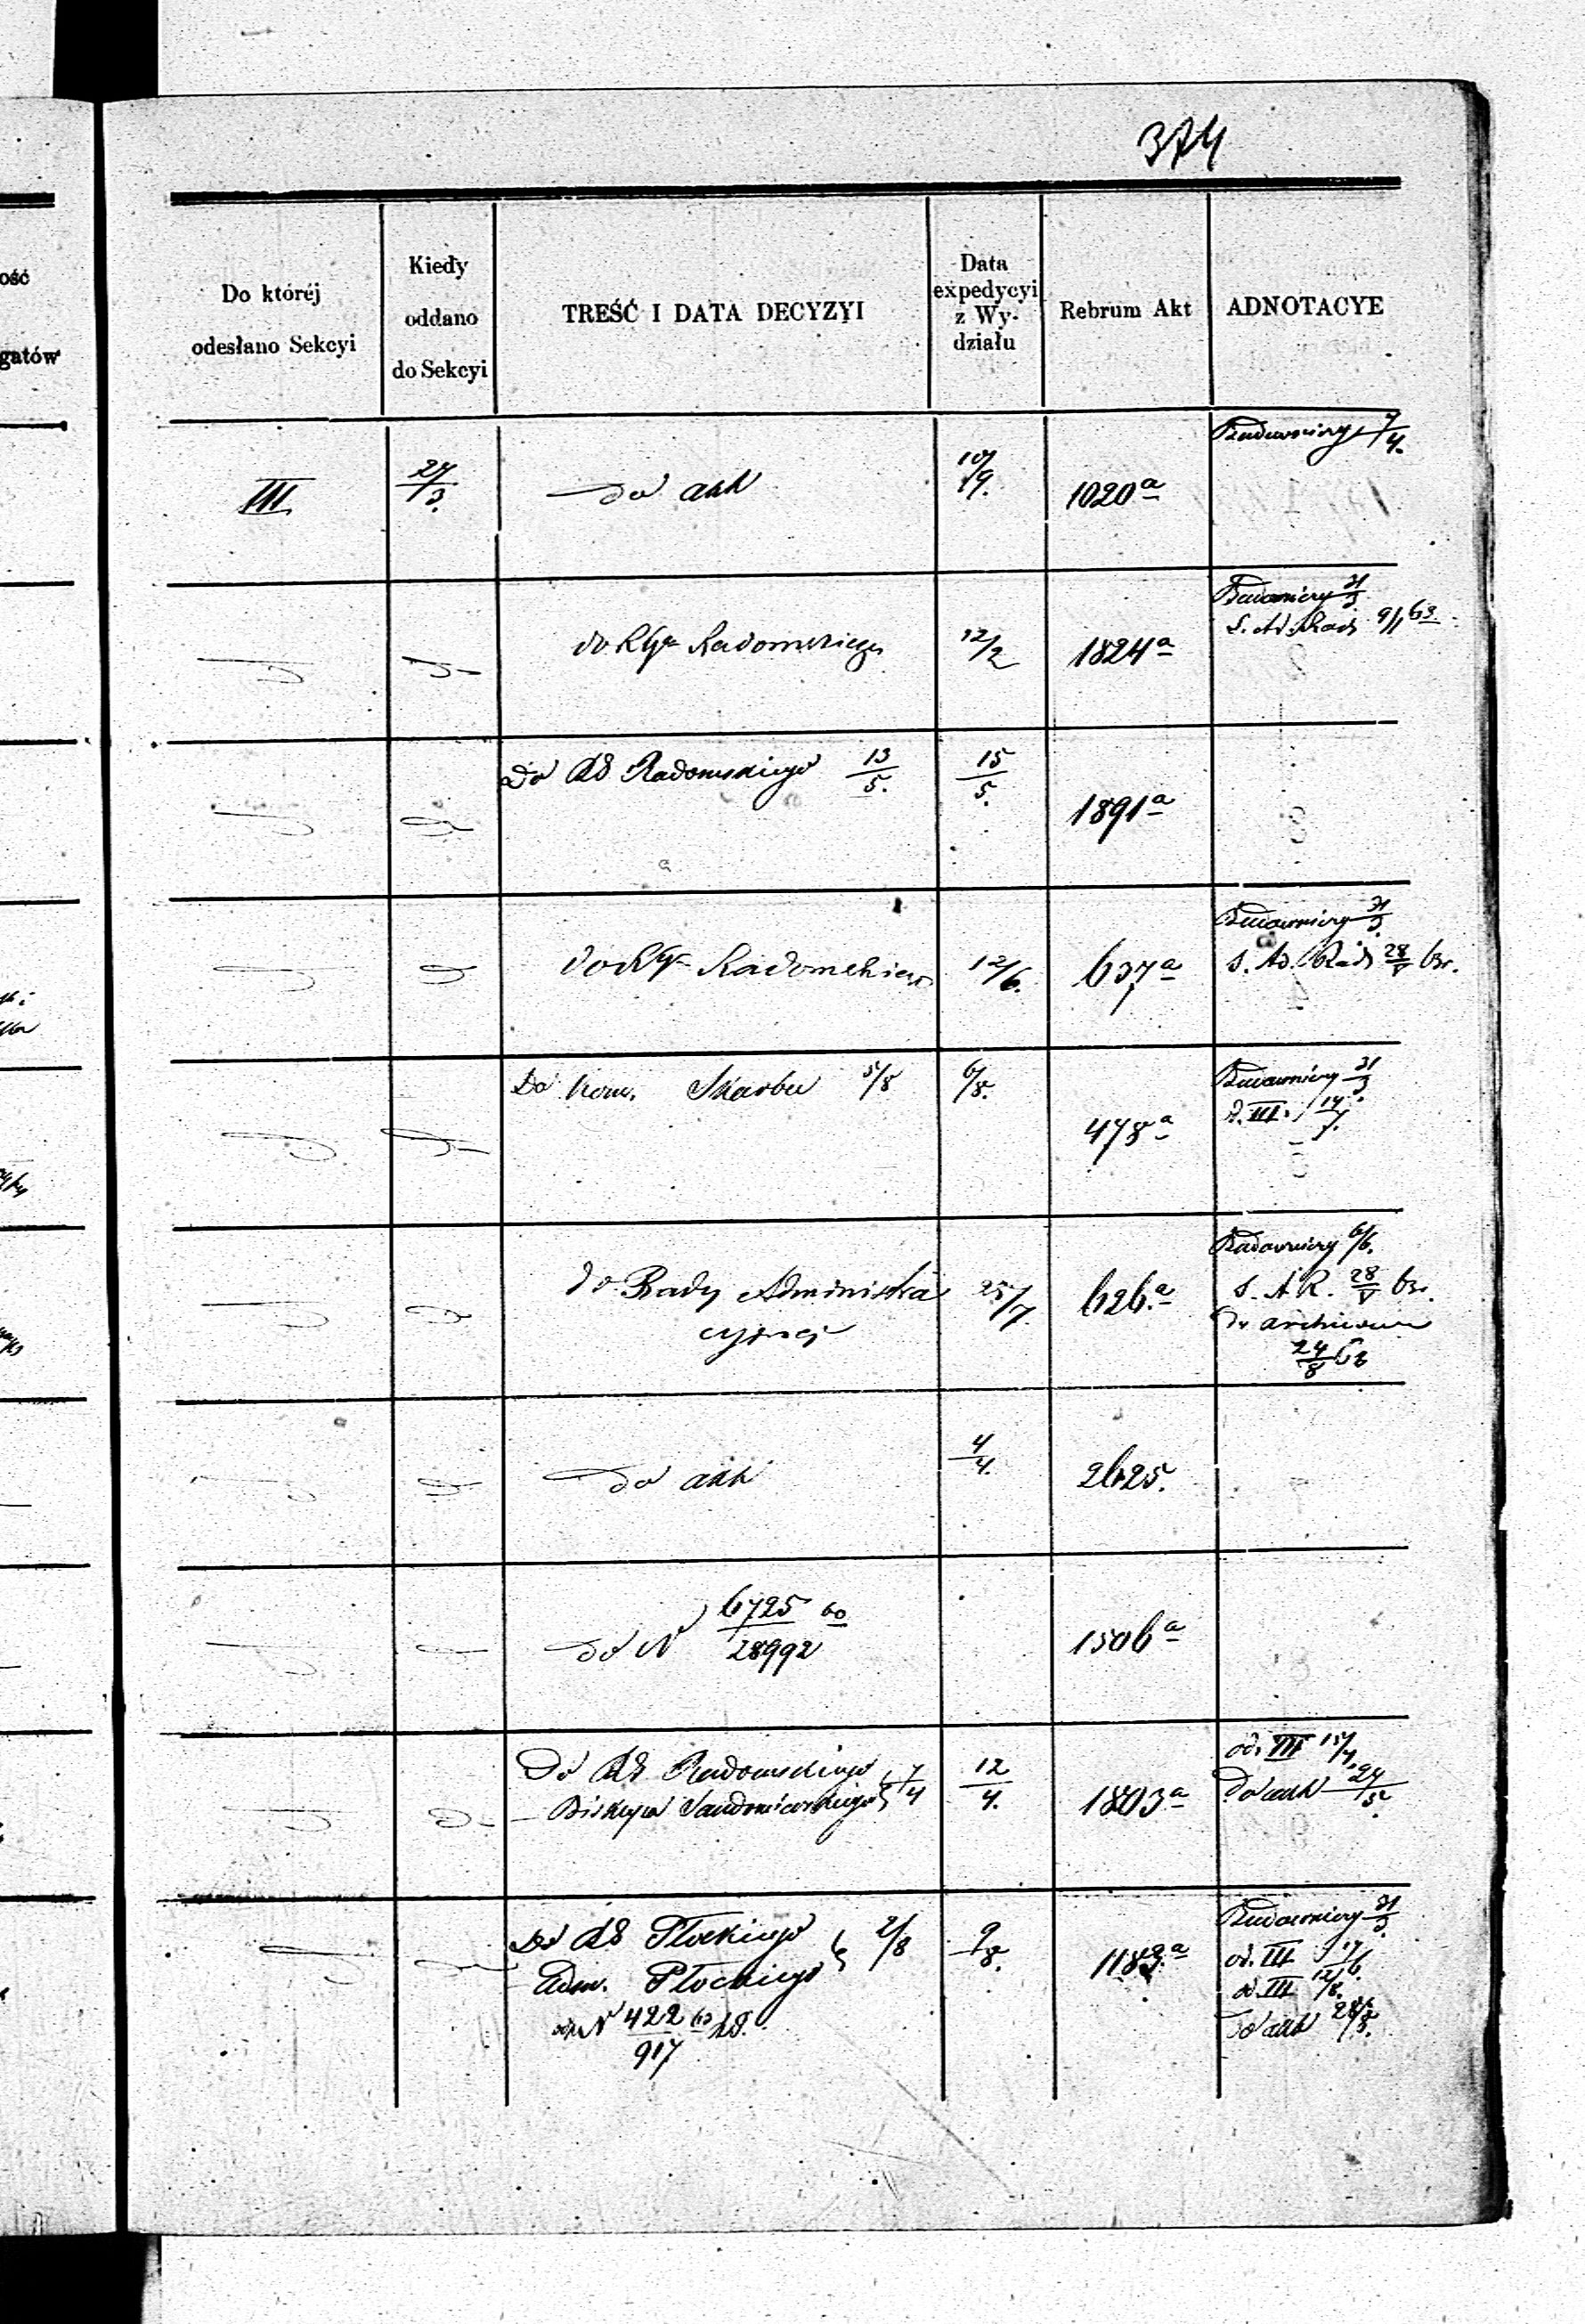 374
ość
gatów
Do któréj
odesłano Sekcyi
Kiedy
oddano
do Sekcyi
TREŚĆ I DATA DECYZYI
Data
expedycyi
z Wy-
działu
Rebrum Akt
ADNOTACYE
III 27/3. do akt 10/9. 1020a
Budowniczy 7/4.
do RGr Radomskiego 12/2 1824a
Budowniczy 31/3
9/1 63
Do RG Radomskiego 13/5. 15/5. 1891a
do RGr Radomskiego 12/6. 637a
Budowniczy 31/3
s. Ad. Rad 28/V 63r.
Do Kom. Skarbu 5/8 6/8. 478a
Budowniczy 31/3
III. 14/7.
do Rady Administra
cyjnej 25/7. 626.a
Budowniczy 6/6.
s. A R. 28/V 63r.
do archiwum
24/8 63
do akt 4/4. 2625.
do N 6725/28992 60 1506a
Do RG Radomskiego
— Biskupa Sandomierskiego 7/4 12/4. 1803a
od. III 15/4.
Do akt 24/5.
Do RG Płockiego
Adm. Płockiego 2/8 9/8. 1183.a
N 422/917 63
Budowniczy 31/3
od. III 17/6
od III 12/8.
Do akt 28/8.